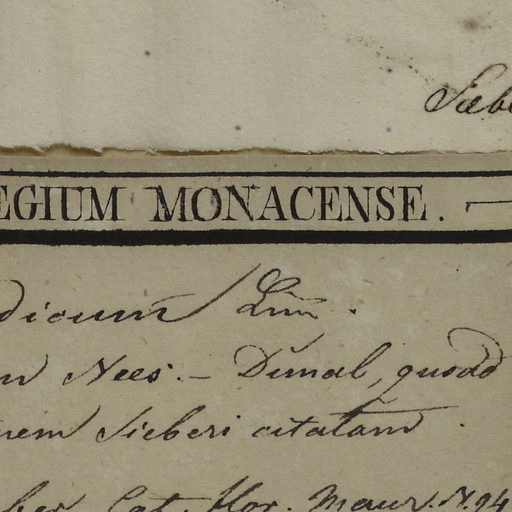 Siebe
EGIUM MONACENSE. —
dicum Lin.
Nees. — Dunal, quoad
rem Sieberi citatam.
ber. Cat. Hor. Maur. N. 94